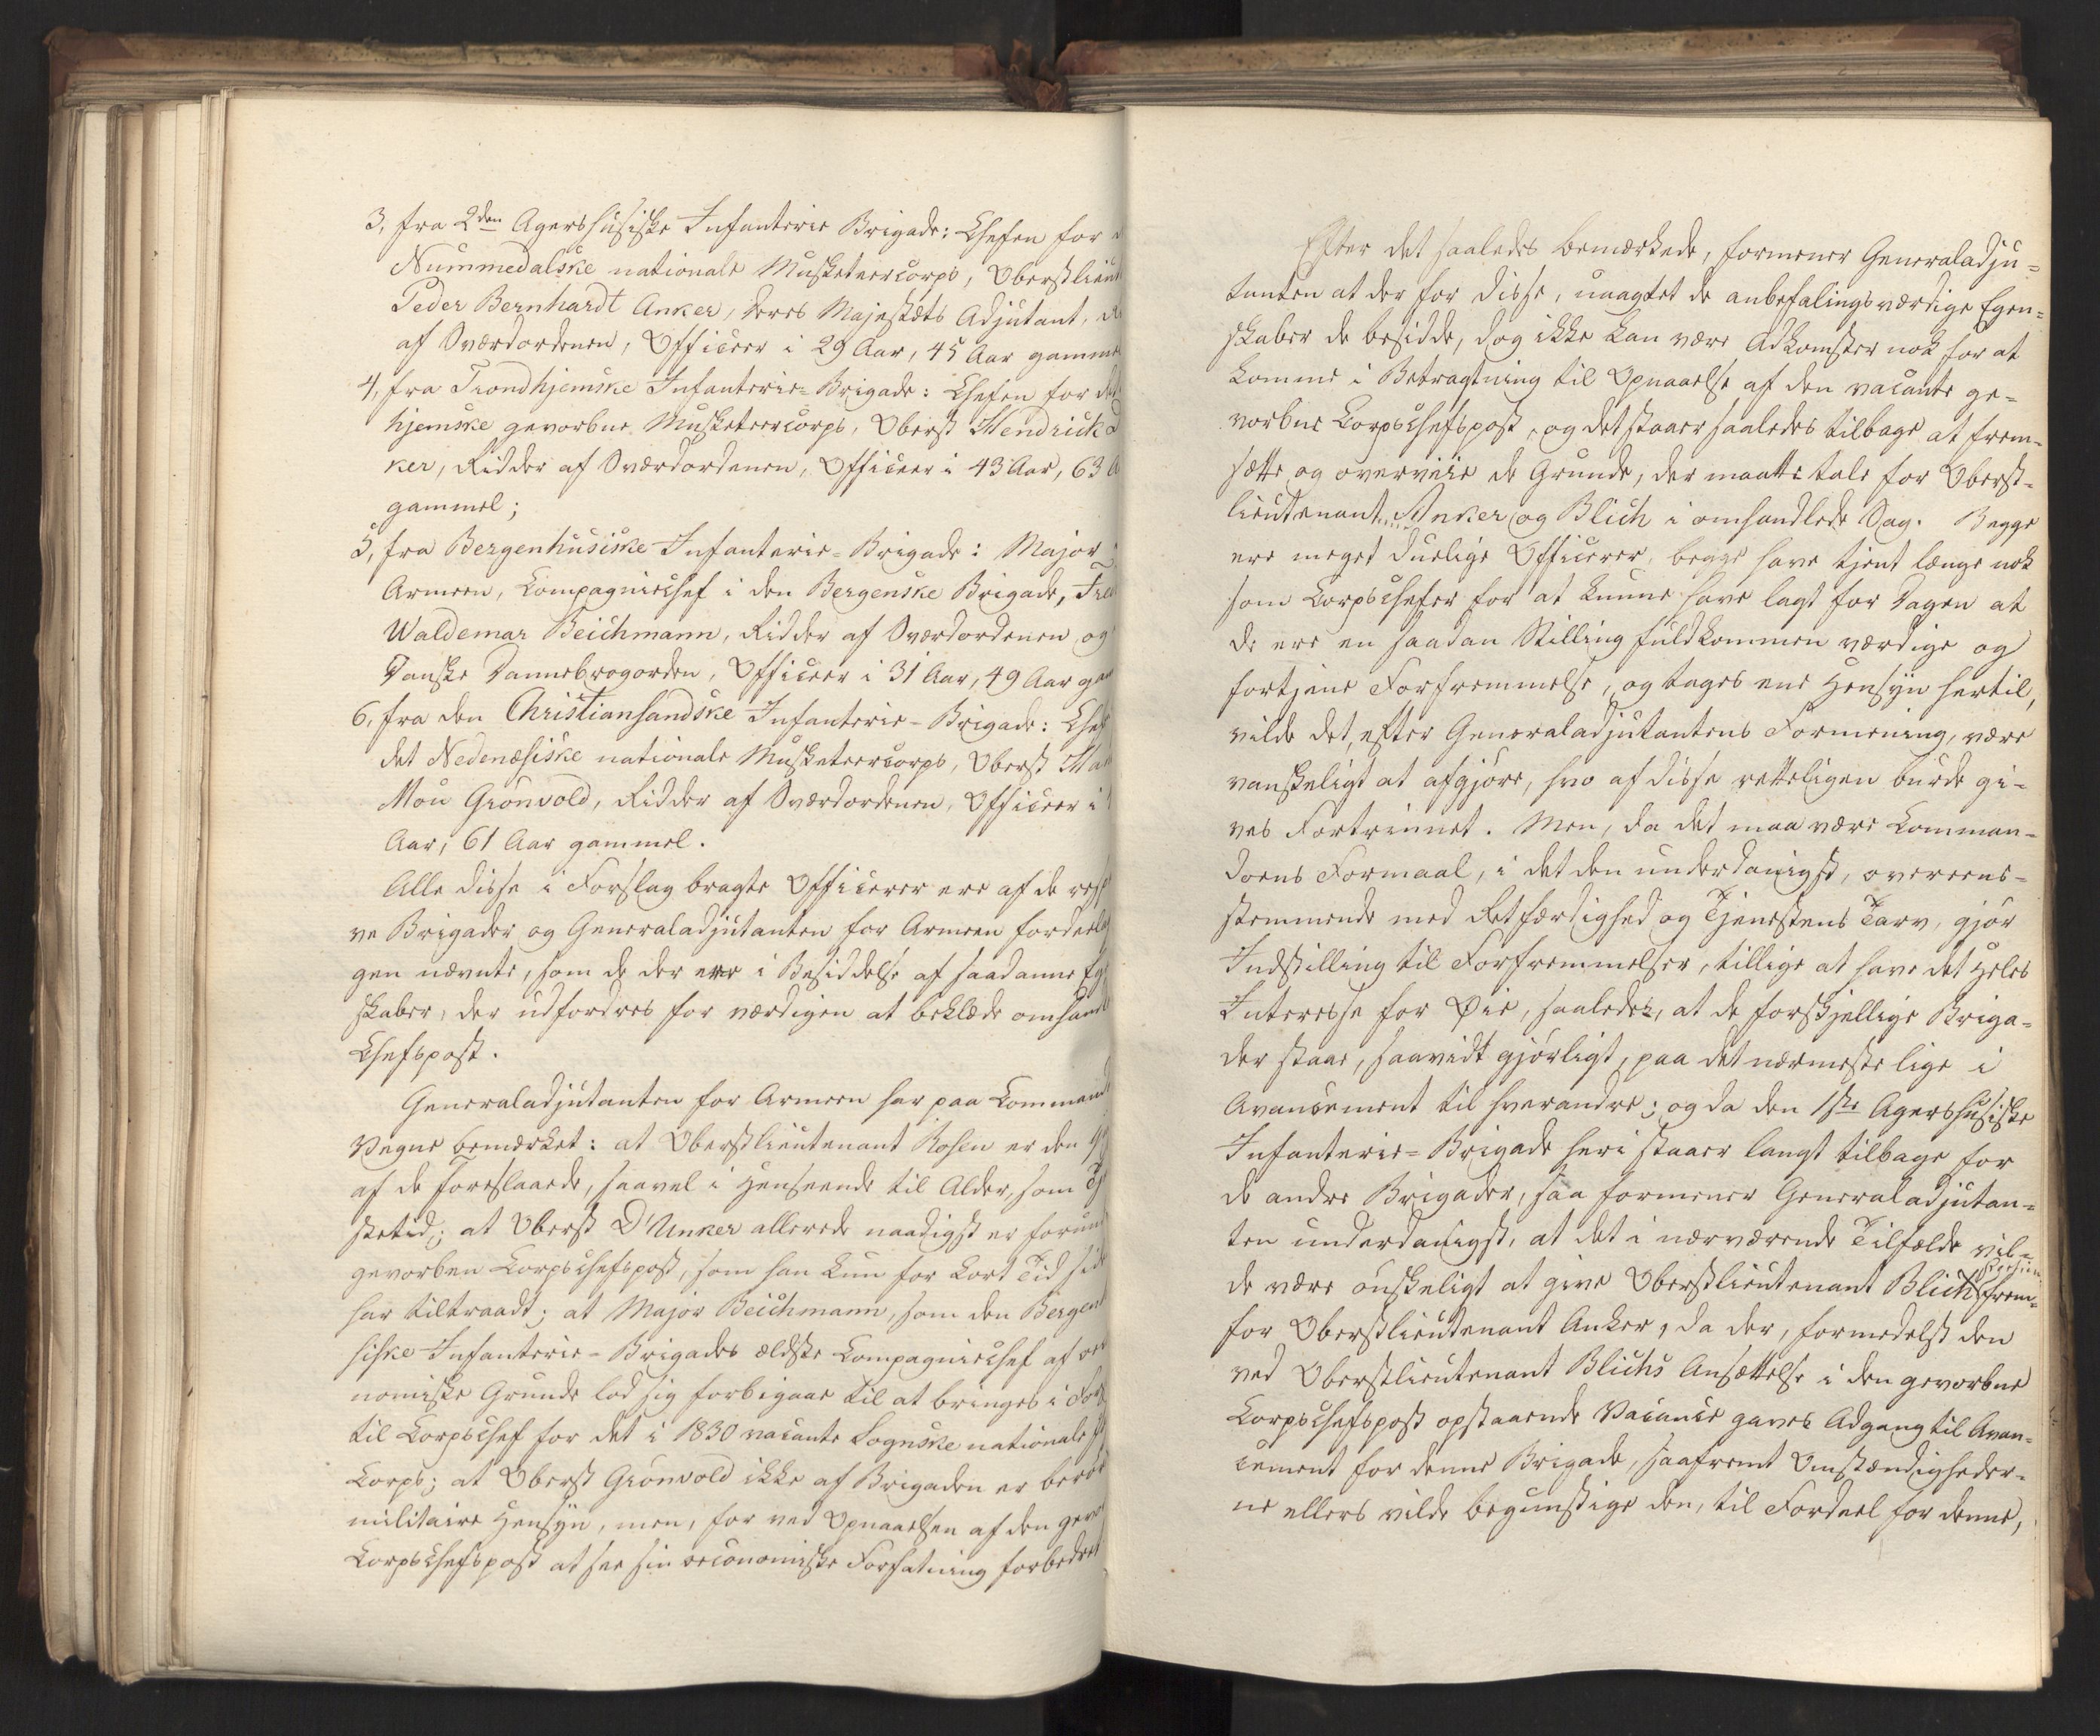 3, fra 2den Agershusiske Infanterie Brigade: Chefen for
Nummedalske nationale Musketeercorps, Oberstlieut
Peder Bernhardt Anker, Deres Majestæts Adjutant,
af Sværdordenen, Officeer i 29 Aar, 45 Aar gamme
4, fra Trondhjemske Infanterie-Brigade: Chefen for det
hjemske gevorbne Musketeercorps, Oberst Hendrick
ker, Ridder af Sværdordenen, Officeer i 43 Aar, 63
gammel;
5, fra Bergenhusiske Infanterie-Brigade: Major i
Armeen, Compagniechef i den Bergenske Brigade,
Waldemar Beichmann, Ridder af Sværdordenen og
Danske Dannebrogorden, Officeer i 31 Aar, 49 Aar gam
6, fra den Christiansandske Infanterie-Brigade: Chef
det Nedenæsiske nationale Musketeercorps, Oberst
Mou Grönvold, Ridder af Sværdordenen, Officeer i
Aar, 61 Aar gammel.
Alle disse i Forslag bragte Officerer ere af de resp
ve Brigader og Generaladjutanten for Armeen fordeela
gen nævnte, som de der ere i Besiddelse af saadanne Eg
skaber, der udfordres for værdigen at beklæde omhandl
Chefspost.
Generaladjutanten for Armeen har paa Command
Vegne bemærket: at Oberstlieutenant Rosen er den
af de foreslaaede, saavel i Henseende til Alder, som Tje
stetid; at Oberst D'Unker allerede naadigst er forund
gevorben Corpschefspost, som han kun for kort Tid sid
har tiltraadt; at Major Beichmann, som den Bergen
siske Infanterie-Brigades ældste Compagniechef af oec
nomiske Grunde lod sig forbigaae til at bringes i For
til Corpschef for det i 1830 vacante Sognske nationale
Corps; at Oberst Grönvold ikke af Brigaden er
militaire Hensyn, men, for ved Opnaaelsen af den gevor
Corpschefspost at see sin oeconomiske Forfatning forbedret
Efter det saaledes bemærkede, formener Generaladju-
tanten at der for disse, uagtet de anbefalingsværdige Egen-
skaber de besidde, dog ikke kan være Adkomster nok for at
komme i Betragtning til Opnaaelse af den vacante ge-
vorbne Corpschefspost, og det staaer saaledes tilbage at frem-
sætte og overveie de Grunde, der maatte tale for Oberst-
lieutenant Anker og Blich i omhandlede Sag. Begge
ere meget duelige Officerer, begge have tjent længe nok
som Corpschefer for at kunne have lagt for Dagen at
de ere en saadan Stilling fuldkommen værdige og
fortjene Forfremmelse, og toges ene Hensyn hertil,
vilde det, efter Generaladjutantens Formening, være
vanskeligt at afgjöre, hvo af disse retteligen burde gi-
ves Fortrinnet. Men, da det maa være Comman-
doens Formaal, i det den underdanigst, overeens-
stemmende med Retfærdighed og Tjenestens Tarv, gjör
Indstilling til Forfremmelser, tillige at have det Heles
Interesse for Øie, saaledes, at de forskjellige Briga-
der staae, saavidt gjörligt, paa det nærmeste lige i
Avancement til hverandre; og da den 1ste Agershusiske
Infanterie-Brigade heri staaer langt tilbage for
de andre Brigader, saa formener Generaladjutan-
ten underdanigst, at det i nærværende Tilfælde vil-
de være önskeligt at give Oberstlieutenant Blich frem-
for Oberstlieutenant Anker, da der, formedelst den
ved Oberstlieutenant Blichs Ansættelse i den gevorbne
Corpschefspost opstaaende Vacance gaves Adgang til Avan-
cement for denne Brigade, saafremt Omstændigheder-
ne ellers vilde begunstige den, til Fordeel for denne,